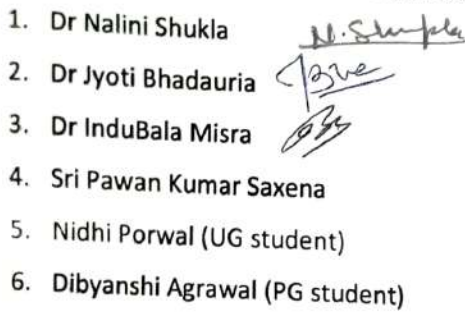 1. Dr Nalini Shukla N. Shukla
2. Dr Jyoti Bhadauria
3. Dr InduBala Misra
4. Sri Pawan Kumar Saxena
5. Nidhi Porwal (UG student)
6. Dibyanshi Agrawal (PG student)